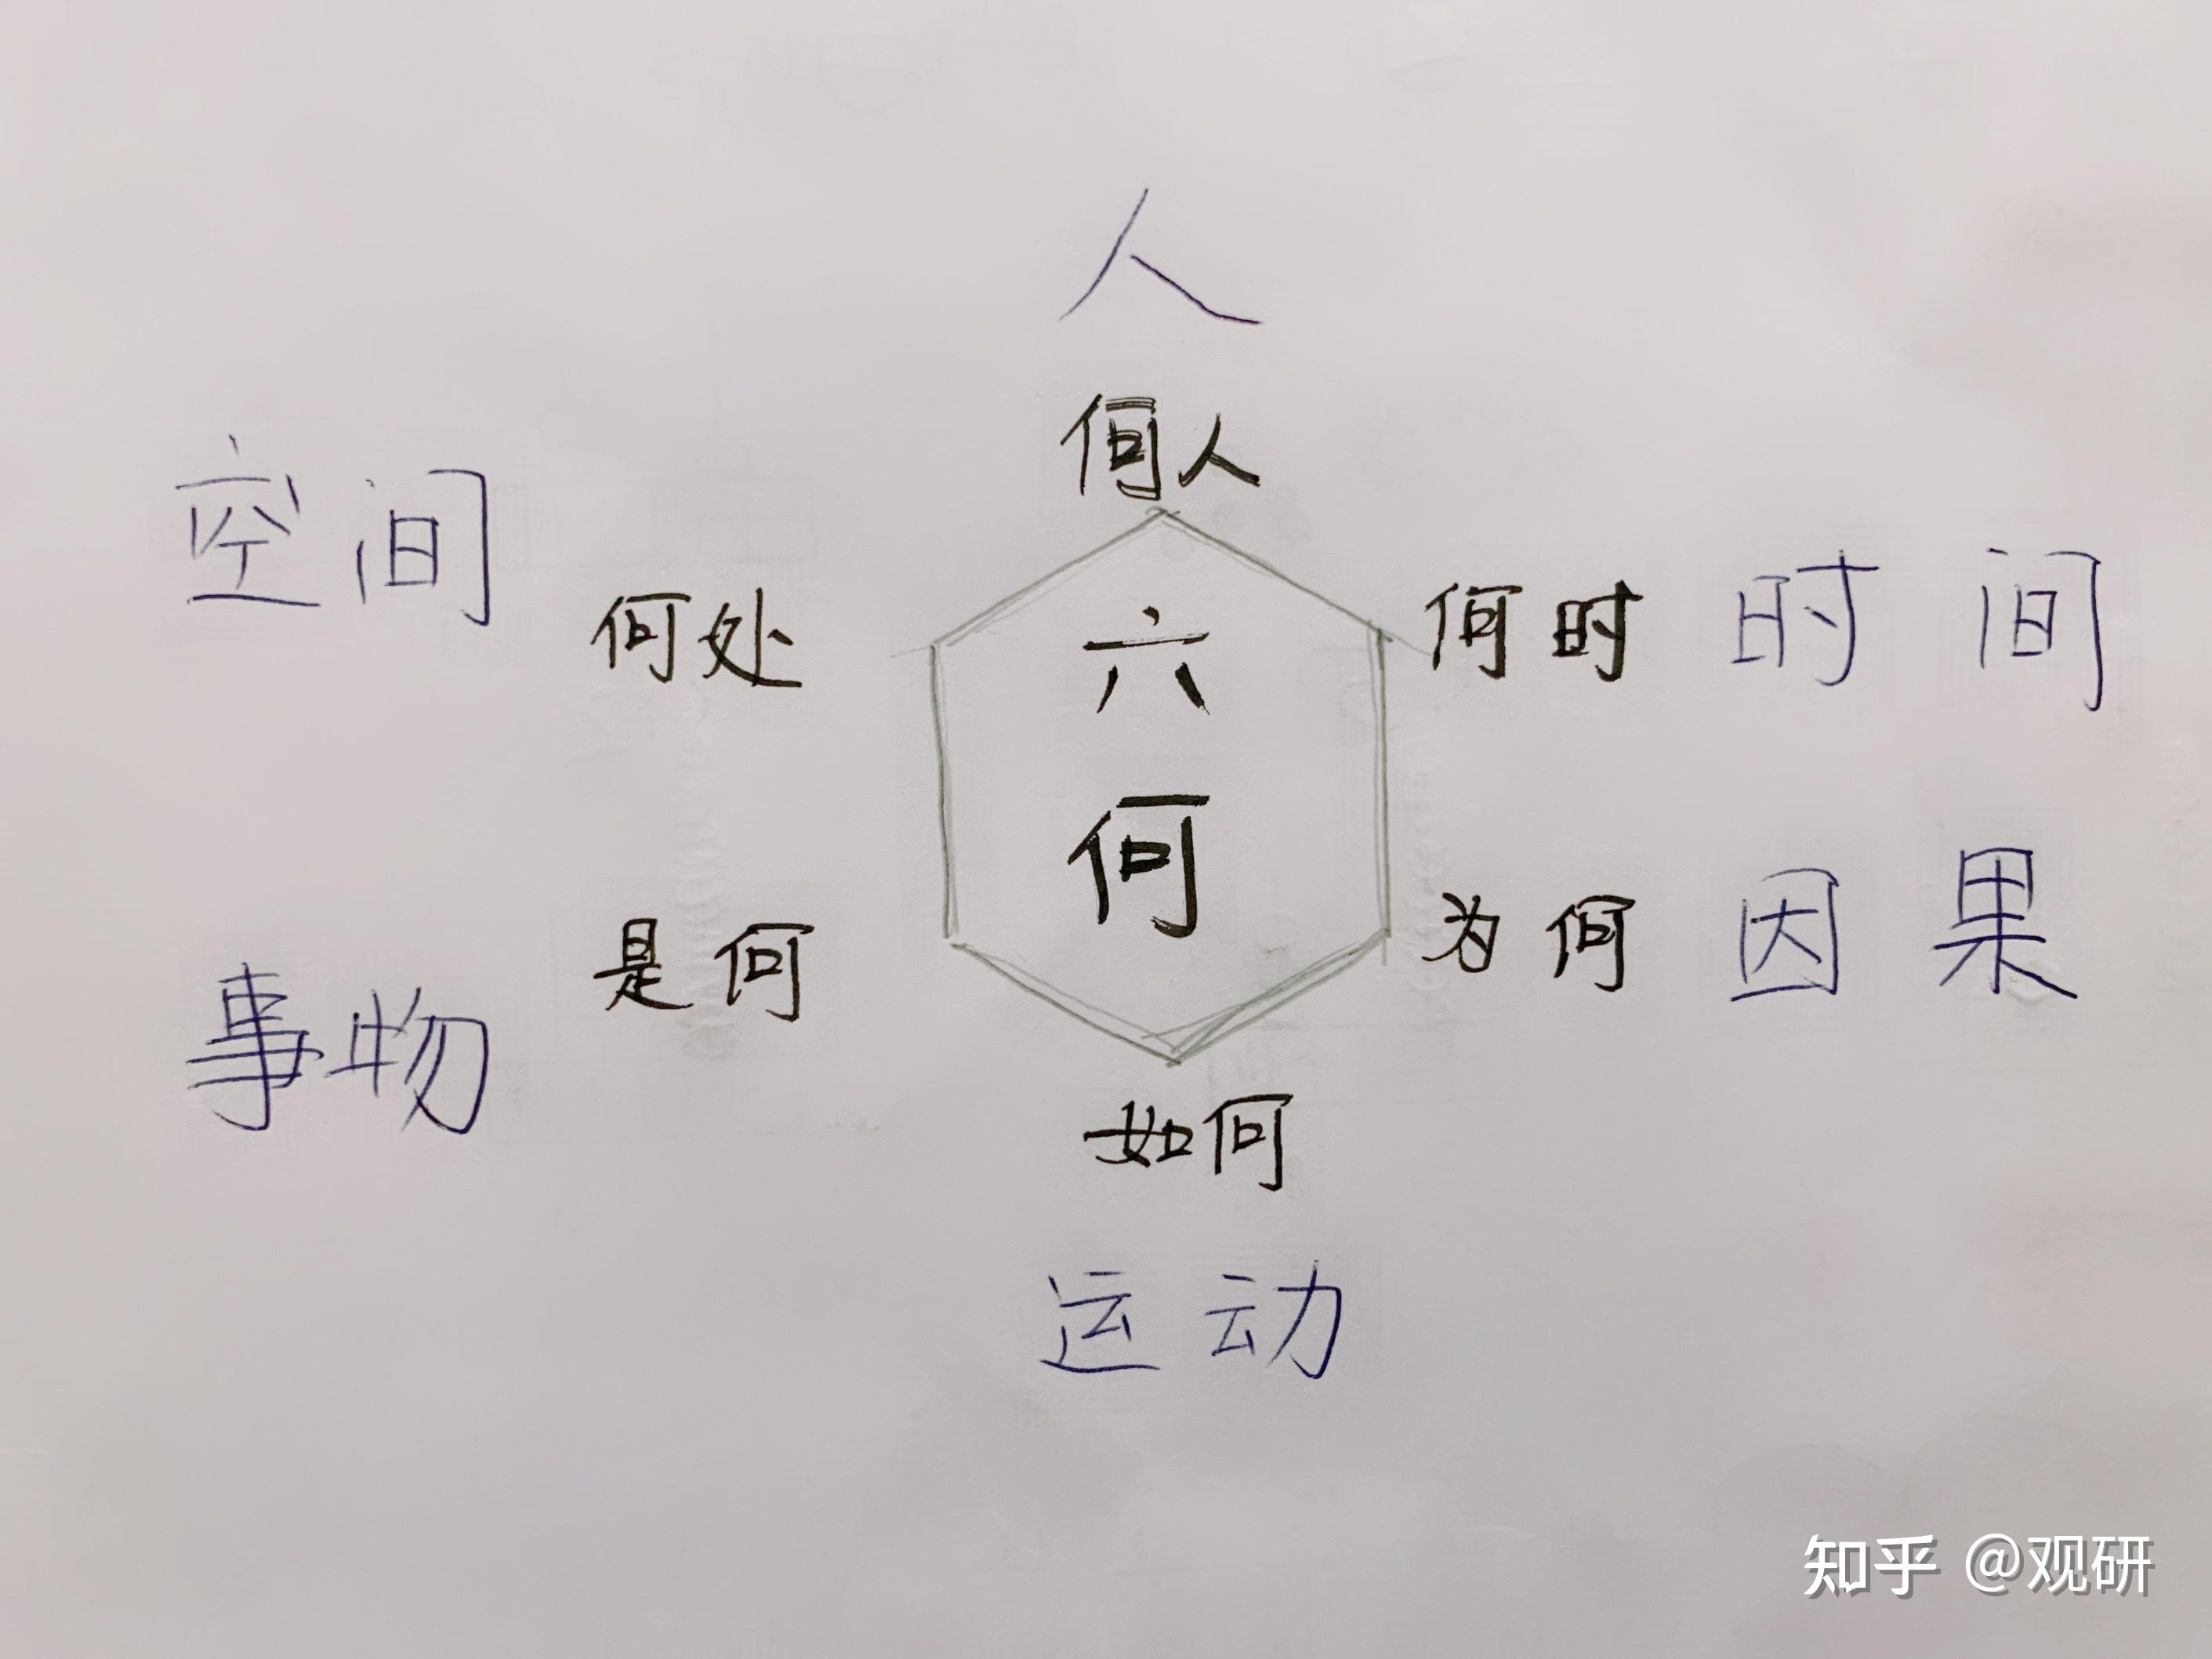 人
何人
空间
何处
六
何
何时 时间
是何
为何 因果
事物
如何
运动
知乎 @观研